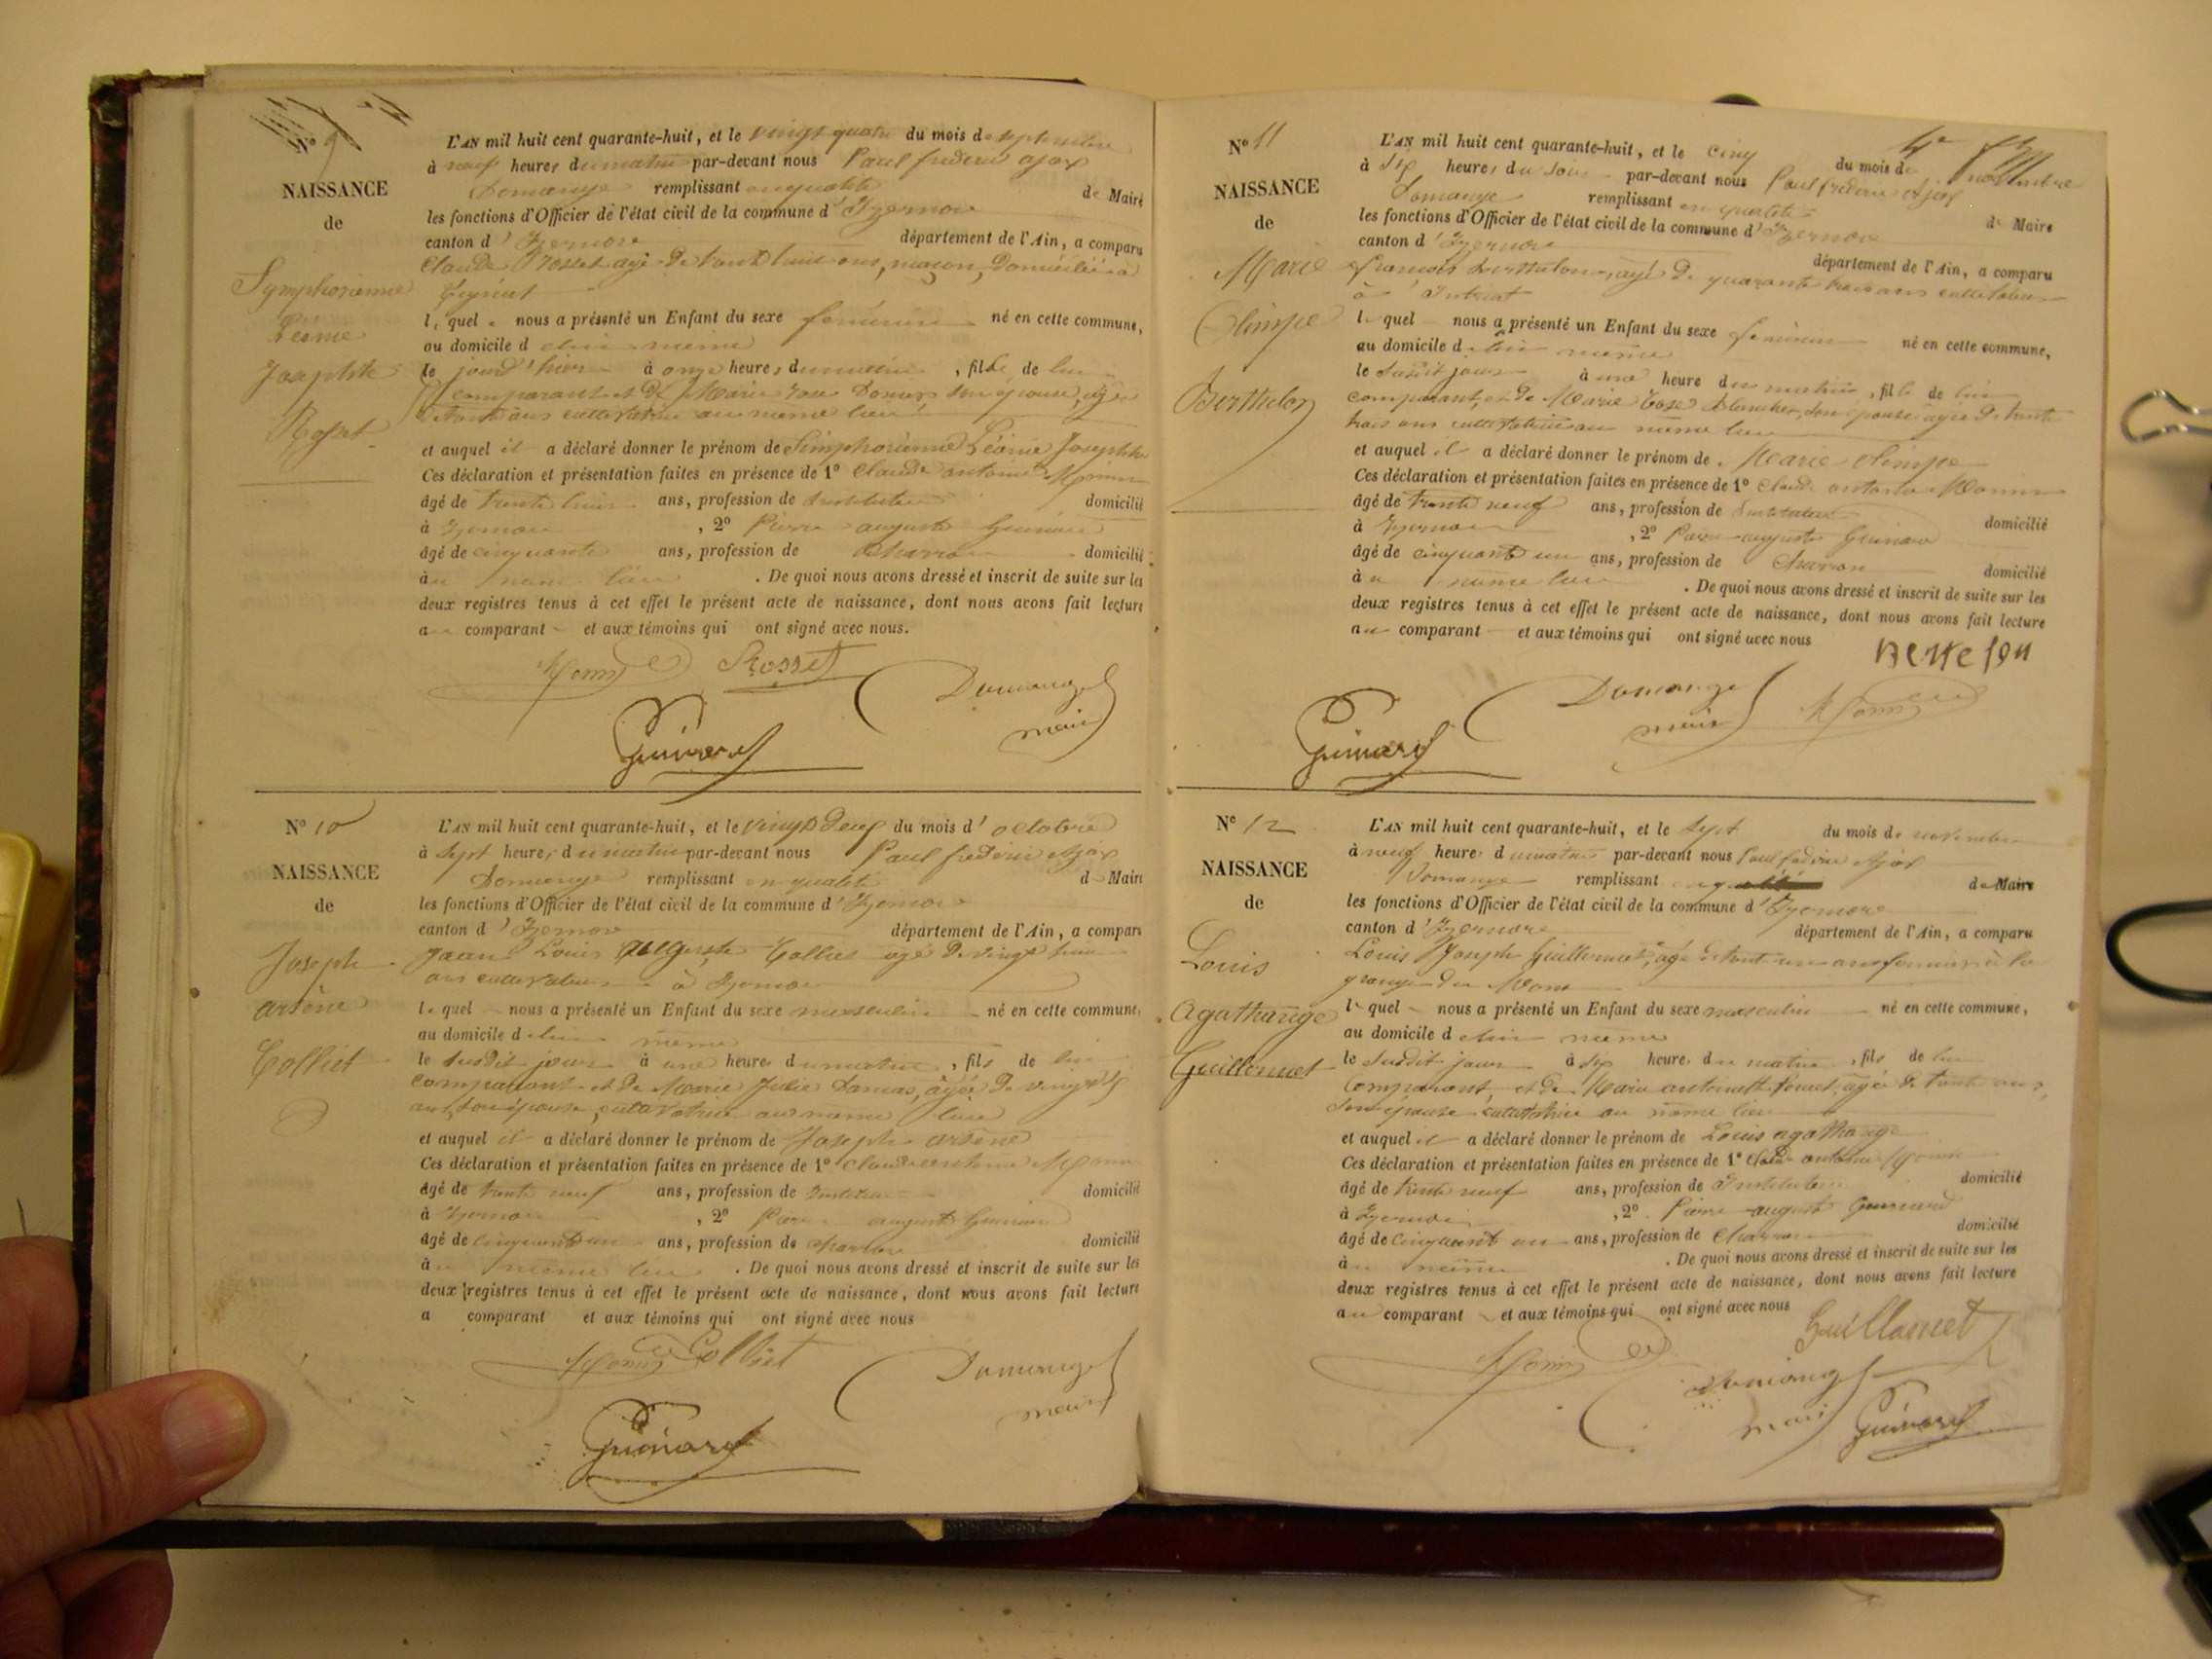 N° 9
NAISSANCE
de
Symphorienne
Léonie
Josephte
Rosset
L'AN mil huit cent quarante-huit, et le vingt quatre du mois de septembre
à neuf heures du matin par-devant nous Paul frederic ajax
Domange remplissant en qualité de Maire
les fonctions d'Officier de l'état civil de la commune d'Izernore
canton d'Izernore département de l'Ain, a comparu
Claude Rosset agé de trente huit ans, maçon, domicilié à
lequel nous a présenté un Enfant du sexe féminin né en cette commune,
au domicile de lui même
le jour d'hier à onze heures du matin, fille de lui
comparant et de Marie son épouse, agée
de trente ans cultivatrice au même lieu
et auquel il a déclaré donner le prénom de Simphorienne Léonie Josephte
Ces déclaration et présentation faites en présence de 1° Claude antoine Monin
âgé de trente huit ans, profession de instituteur domicilié
à Izernore, 2° Pierre auguste Guinard
âgé de cinquante ans, profession de charron domicilié
au même lieu. De quoi nous avons dressé et inscrit de suite sur les
deux registres tenus à cet effet le présent acte de naissance, dont nous avons fait lecture
au comparant et aux témoins qui ont signé avec nous.
Monin Rosset
Domange
maire
Guinard
N° 10
NAISSANCE
de
Joseph
arsène
Colliet
L'AN mil huit cent quarante-huit, et le vingt deux du mois d'octobre
à sept heures du matin par-devant nous Paul frederic Ajax
Domange remplissant en qualité de Maire
les fonctions d'Officier de l'état civil de la commune d'Izernore
canton d'Izernore département de l'Ain, a comparu
Jean Louis auguste Colliet agé de vingt huit
ans cultivateur à Izernore
lequel nous a présenté un Enfant du sexe masculin né en cette commune,
au domicile de lui même
le susdit jour à une heure du matin, fils de lui
comparant et de Marie Julie agée de vingt six
ans, son épouse, cultivatrice au même lieu
et auquel il a déclaré donner le prénom de Joseph arsène
Ces déclaration et présentation faites en présence de 1° Claude antoine Monin
âgé de trente neuf ans, profession de instituteur domicilié
à Izernore, 2° Pierre auguste Guinard
âgé de cinquante un ans, profession de charron domicilié
au même lieu. De quoi nous avons dressé et inscrit de suite sur les
deux registres tenus à cet effet le présent acte de naissance, dont nous avons fait lecture
a comparant et aux témoins qui ont signé avec nous
Monin Colliet
Domange
maire
Guinard
N° 11
NAISSANCE
de
Marie
Olimpe
Berthelon
L'AN mil huit cent quarante-huit, et le cinq du mois de novembre
à six heures du soir par-devant nous Paul frederic Ajax
Domange remplissant en qualité de Maire
les fonctions d'Officier de l'état civil de la commune d'Izernore
canton d'Izernore département de l'Ain, a comparu
francois Berthelon, agé de quarante trois ans cultivateur
à Intriat
lequel nous a présenté un Enfant du sexe féminin né en cette commune,
au domicile de lui même
le susdit jour à une heure du matin, fille de lui
comparant, et de Marie Rose Blanchet, son épouse agée de trente
trois ans cultivatrice au même lieu
et auquel il a déclaré donner le prénom de Marie Olimpe
Ces déclaration et présentation faites en présence de 1° Claude antoine Monin
âgé de trente neuf ans, profession de Instituteur domicilié
à Izernore, 2° Pierre auguste Guinard
âgé de cinquante un ans, profession de Charron domicilié
au même lieu. De quoi nous avons dressé et inscrit de suite sur les
deux registres tenus à cet effet le présent acte de naissance, dont nous avons fait lecture
au comparant et aux témoins qui ont signé avec nous
Domange
maire
Monin
Guinard
N° 12
NAISSANCE
de
Louis
Agathange
Guillermet
L'AN mil huit cent quarante-huit, et le sept du mois de novembre
à neuf heures du matin par-devant nous Paul fréderic Ajax
Domange remplissant en qualité de Maire
les fonctions d'Officier de l'état civil de la commune d'Izernore
canton d'Izernore département de l'Ain, a comparu
Louis Joseph Guillermet, agé de trente un ans fermier à la
grange du Mont
lequel nous a présenté un Enfant du sexe masculin né en cette commune,
au domicile de lui même
le susdit jour à six heures du matin, fils de lui
comparant, et de Marie antoinette agée de trente ans,
son épouse cultivatrice au même lieu
et auquel il a déclaré donner le prénom de Louis agathange
Ces déclaration et présentation faites en présence de 1° Claude antoine Monin
âgé de trente neuf ans, profession de Instituteur domicilié
à Izernore, 2° Pierre auguste Guinard
âgé de cinquante un ans, profession de Charron domicilié
au même. De quoi nous avons dressé et inscrit de suite sur les
deux registres tenus à cet effet le présent acte de naissance, dont nous avons fait lecture
au comparant et aux témoins qui ont signé avec nous
Guillermet
Monin
Domange
maire
Guinard